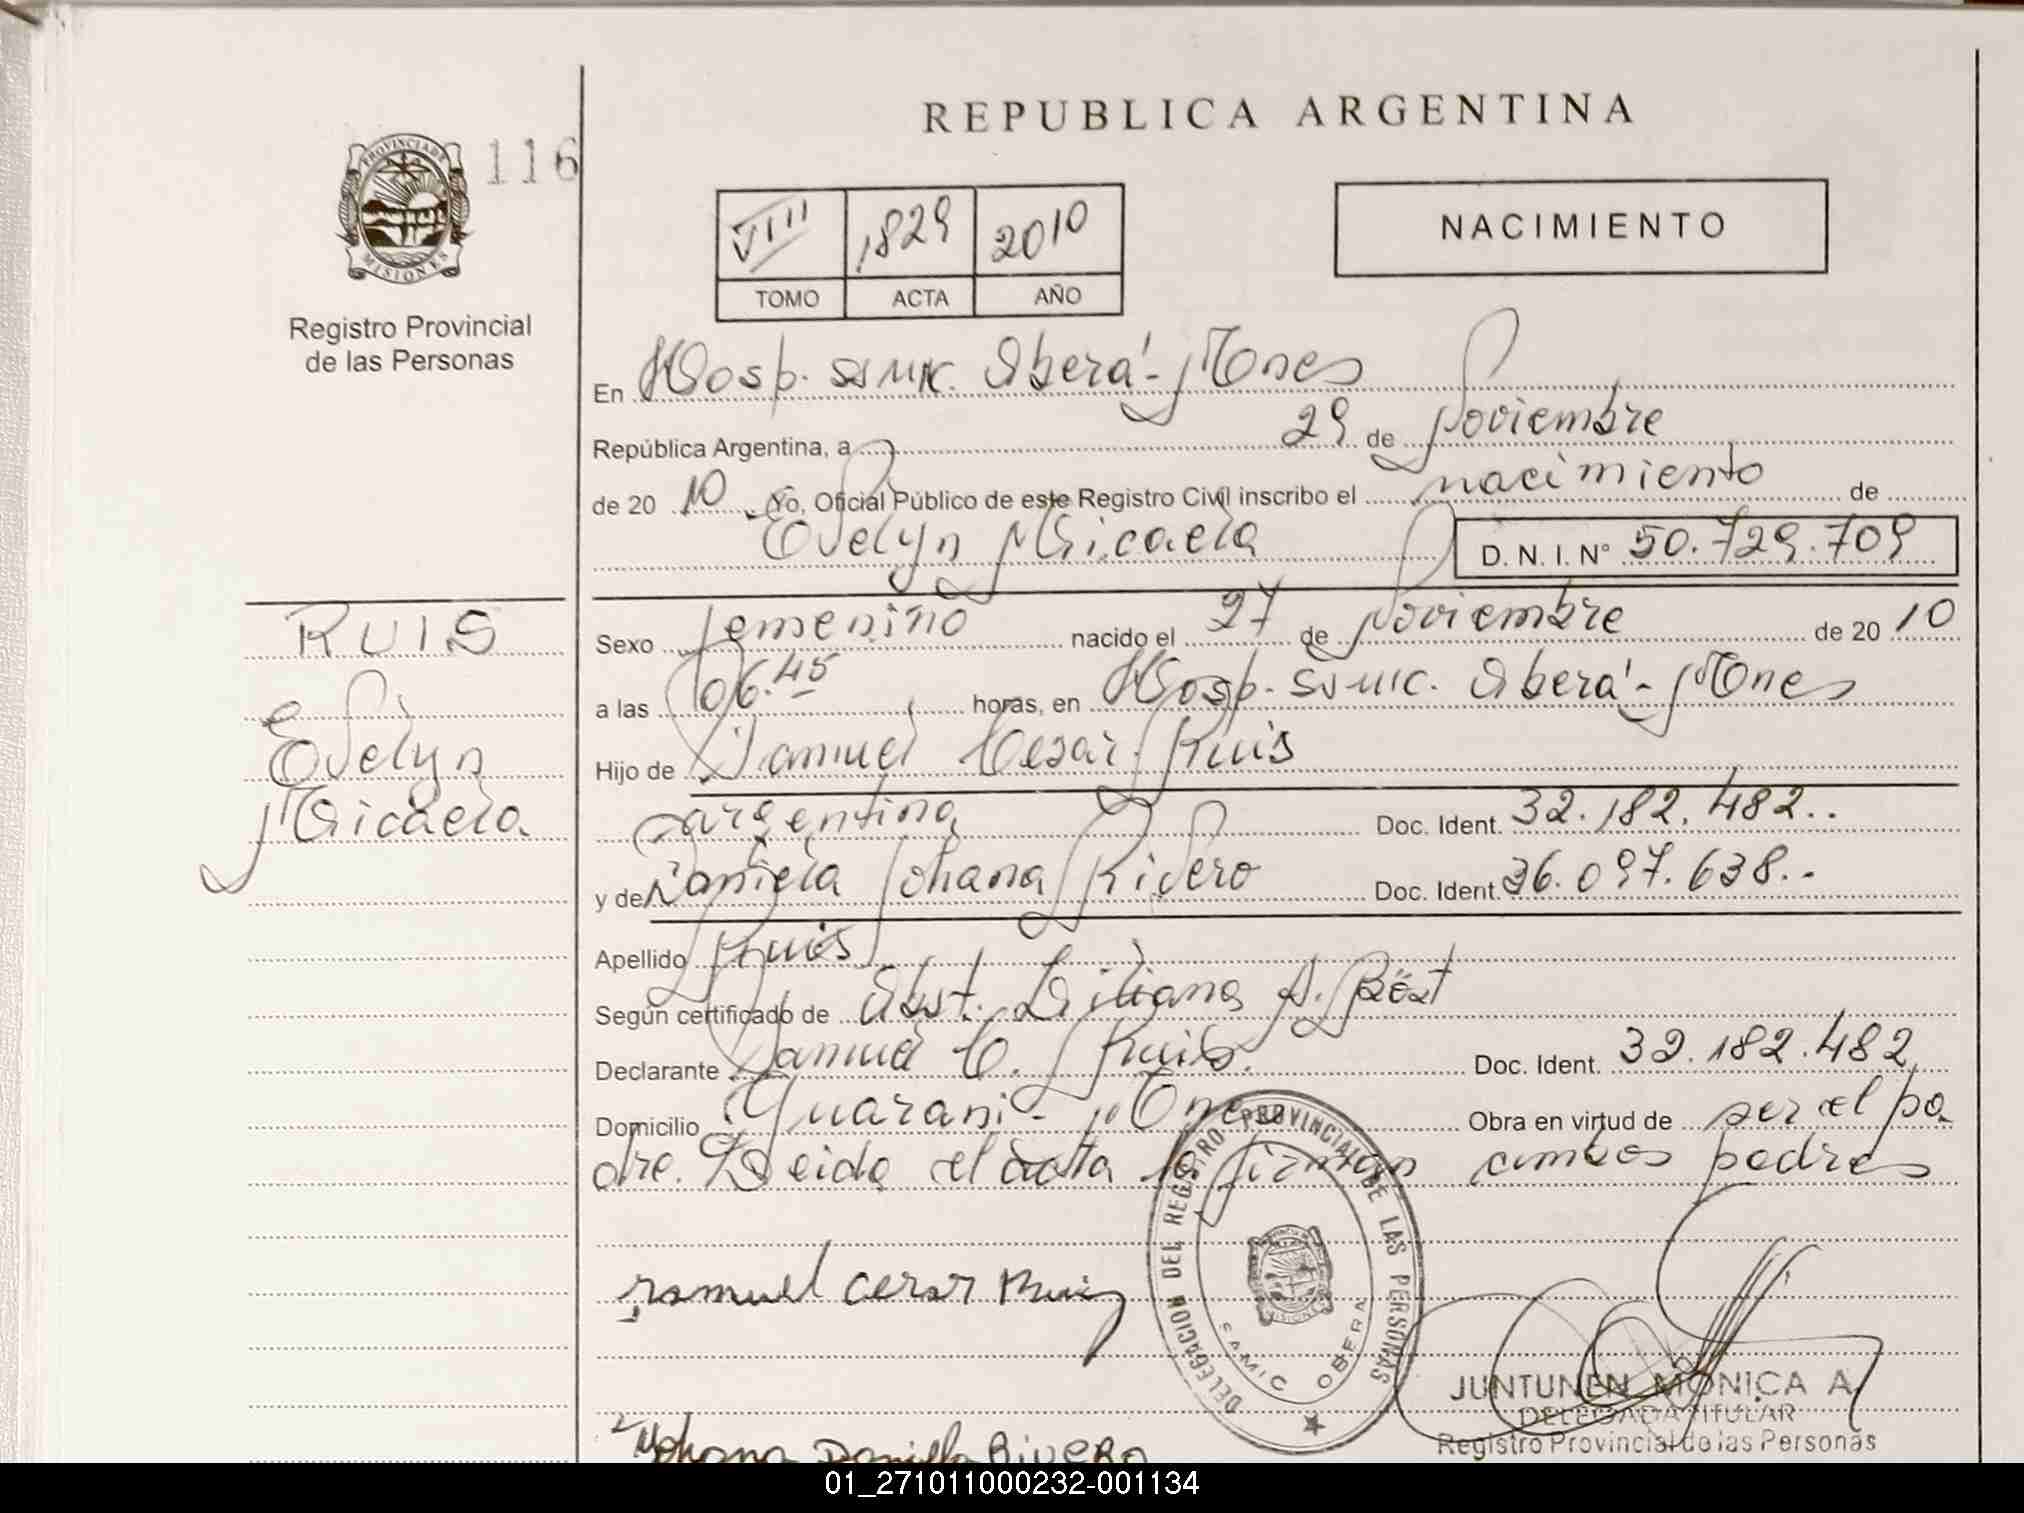 REPUBLICA ARGENTINA
PROVINCIA DE
MISIONES
116
Registro Provincial
de las Personas
VIII 1829 2010
TOMO ACTA AÑO
NACIMIENTO
En Hosp. Samic. Oberá - Mnes
República Argentina, a 29 de Noviembre
de 20 10 Yo, Oficial Público de este Registro Civil inscribo el nacimiento de
Evelyn Micaela D. N. I. N° 50.729.709
RUIS
Evelyn
Micaela
Sexo femenino nacido el 27 de Noviembre de 20 10
a las 06.45 horas, en Hosp. Samic. Oberá - Mnes
Hijo de Samuel Cesar Ruis
argentino Doc. Ident. 32.182.482..
y de Daniela Johana Rivero Doc. Ident. 36.097.638..
Apellido Ruis
Según certificado de Obst. Liliana A.
Declarante Samuel C. Ruis. Doc. Ident. 32.182.482
Domicilio Guarani - Mnes Obra en virtud de ser el pa
dre. Leida el acta la firman ambos padres
DELEGACION DEL REGISTRO PROVINCIAL DE LAS PERSONAS
SAMIC OBERA
MISIONES
samuel cesar Ruiz
JUNTUNEN MONICA A.
DELEGADA TITULAR
Registro Provincial de las Personas
Johana Daniela Rivero
01_271011000232-001134